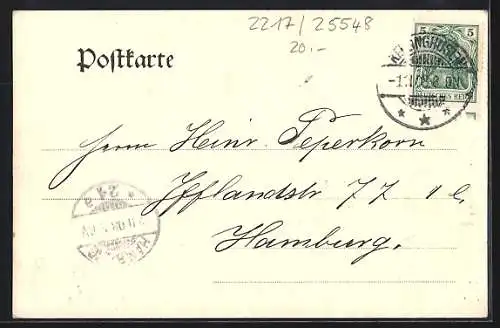 2217/25548
20.-
Postkarte
5 5
DEUTSCHES REICH
Herrn Heinr. Peperkorn
Ifflandstr 77 I l.
Hamburg.